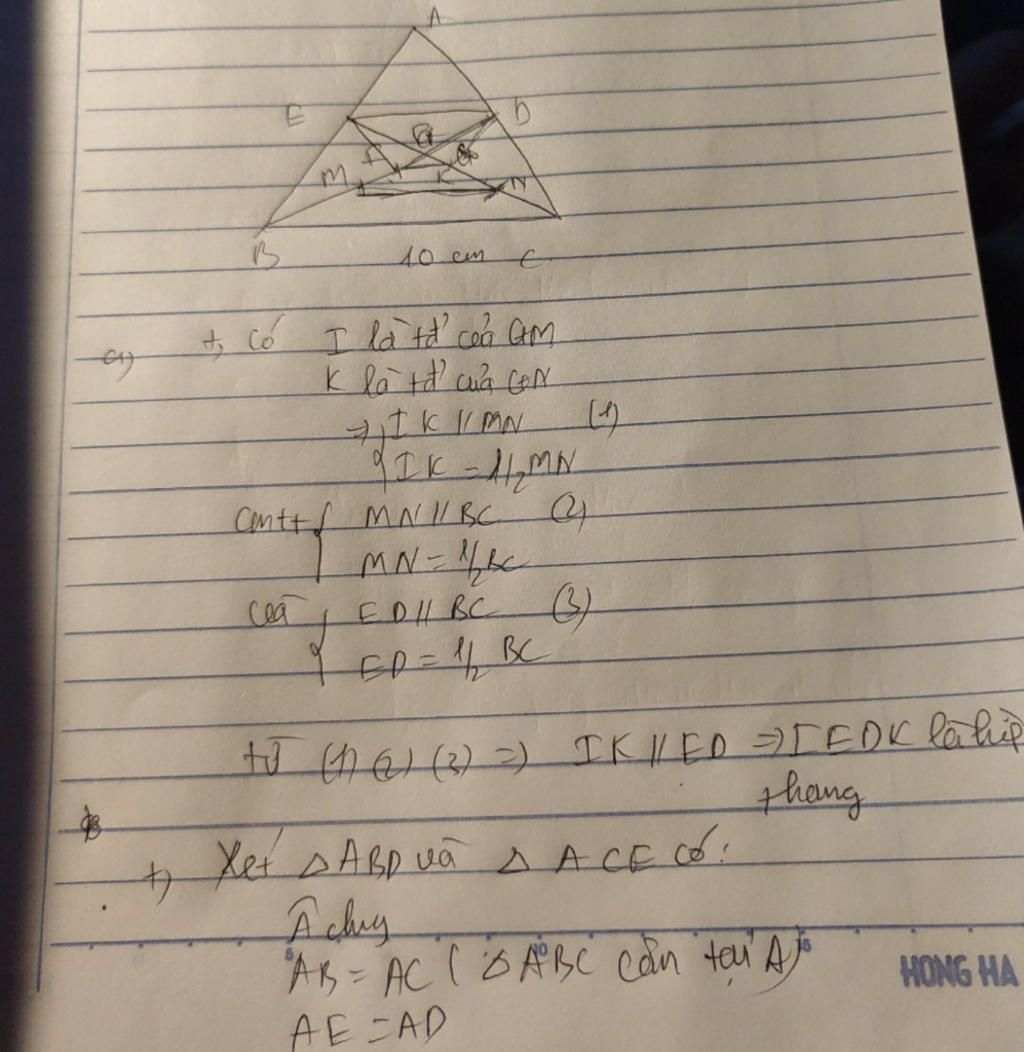 A
E
D
G
I
M
K
N
B
10 cm
C
a)
+, Có I là tđ' của GM
K là tđ' của GN
=> { IK // MN (1)
IK = 1/2 MN
cmtt { MN // BC (2)
MN = 1/2 BC
và { ED // BC (3)
ED = 1/2 BC
từ (1) (2) (3) => IK // ED => IEDK là
thang
+) Xét △ ABD và △ ACE có:
Â chug
AB = AC ( △ ABC cân tại A)
HONG HA
AE = AD